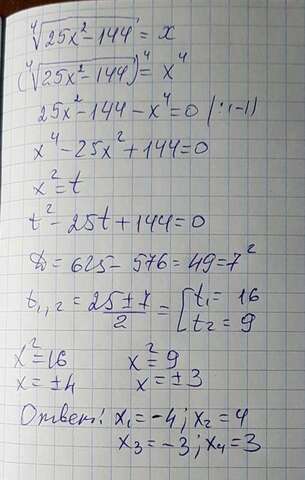 ⁴√(25x²-144) = x
(⁴√(25x²-144))⁴ = x⁴
25x²-144-x⁴=0 |:(-1)
x⁴-25x²+144=0
x²=t
t²-25t+144=0
D=625-576=49=7²
t₁,₂ = (25±7)/2 = [t₁=16
t₂=9
x²=16 x²=9
x=±4 x=±3
Ответ: x₁=-4; x₂=4
x₃=-3; x₄=3